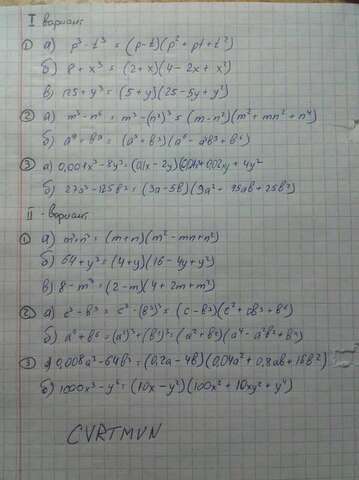 I вариант
① а) p³ - t³ = (p-t)(p² + pt + t²)
б) 8 + x³ = (2+x)(4 - 2x + x²)
в) 125 + y³ = (5+y)(25 - 5y + y²)
② а) m³ - n⁶ = m³ - (n²)³ = (m - n²)(m² + mn² + n⁴)
б) a⁹ + b⁹ = (a³ + b³)(a⁶ - a³b³ + b⁶)
③ а) 0,001x³ - 8y³ = (0,1x - 2y)(0,01x² + 0,02xy + 4y²
б) 27a³ - 125b³ = (3a - 5b)(9a² + 15ab + 25b²)
II - вариант
① а) m³+n³ = (m+n)(m² - mn + n²)
б) 64 + y³ = (4+y)(16 - 4y + y²)
в) 8 - m³ = (2-m)(4 + 2m + m²)
② а) c³ - b⁹ = c³ - (b³)³ = (c - b³)(c² + cb³ + b⁶)
б) a⁶ + b⁶ = (a²)³ + (b²)³ = (a² + b²)(a⁴ - a²b² + b⁴)
③ а) 0,008a³ - 64b³ = (0,2a - 4b)(0,04a² + 0,8ab + 16b²)
б) 1000x³ - y⁶ = (10x - y²)(100x² + 10xy² + y⁴)
CVRTMVN